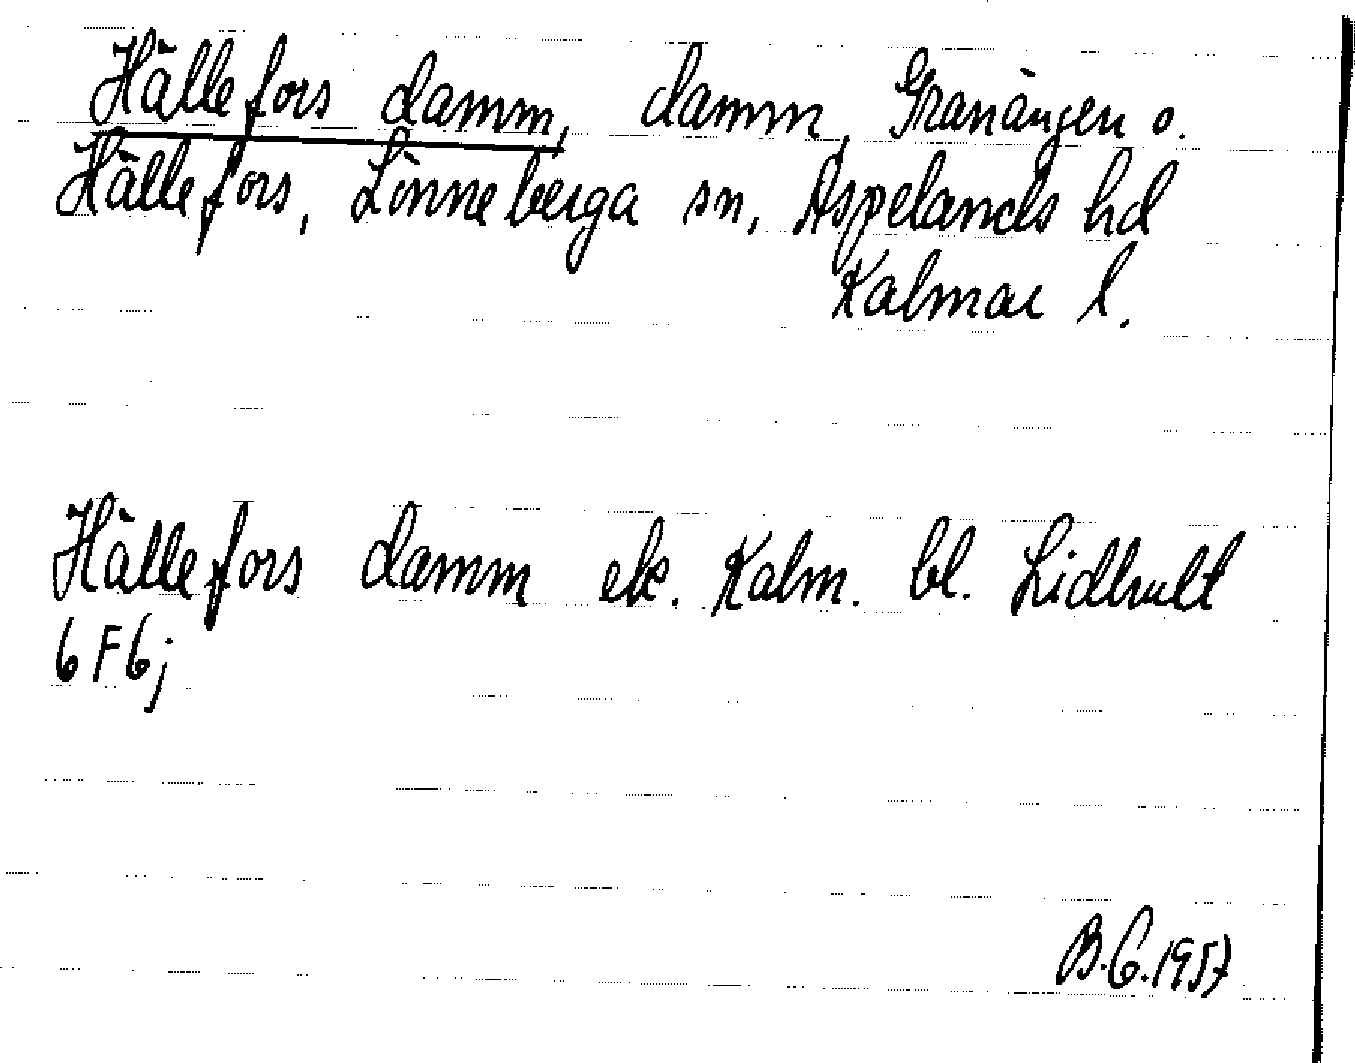 Hällefors damm, damm, Granängen o.
Hällefors, Lönneberga sn, Aspelands hd
Kalmar l.
Hällefors damm ek. Kalm. bl. Lidhult
6F6j
B.G. 1957